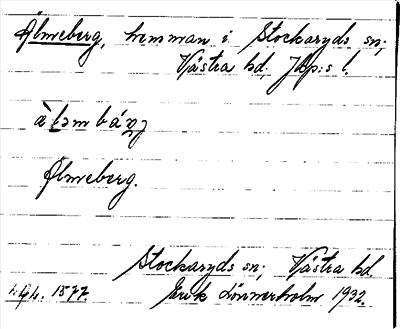 Älmeberg, hemman i Stockaryds sn;
Västra hd, Jkp:s l.
Älmeberg.
Stockaryds sn; Västra hd.
1577. Erik Lönnerholm 1932.